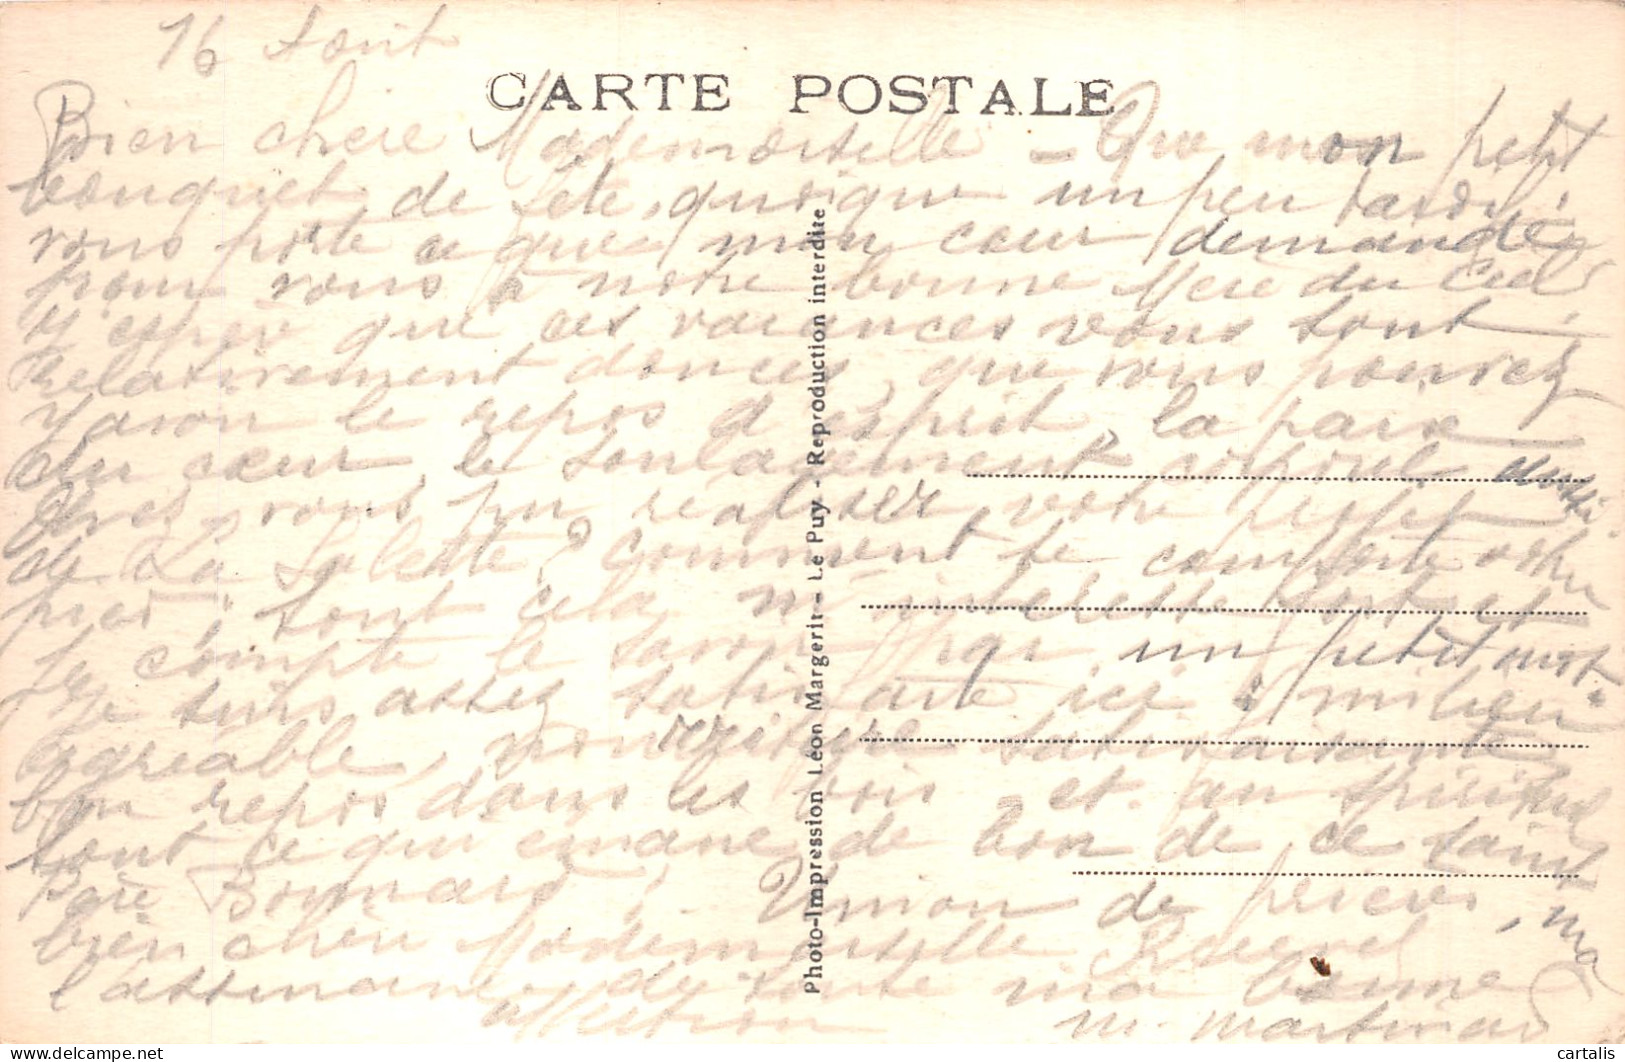 16 Août
CARTE POSTALE
Bien chère Mademoiselle - Que mon petit
bouquet de fête, quoique un peu tardif,
vous porte ce que mon cœur demande
pour vous à notre bonne Mère du Ciel
J'espère que ces vacances vous sont
relativement douces, que vous pouvez
y avoir le repos d'esprit, la paix
du cœur, le soulagement corporel aussi.
Avez-vous pu réaliser votre projet
de La Salette? comment se comporte votre
pied; tout cela m'intéresse fort et
je compte le savoir par un petit mot.
Je suis assez satisfaite ici: milieu
agréable, nourriture satisfaisante
bon repos dans les bois et au spirituel
tout ce qui émane de bon de ce saint
Père Bonnard; Union de prières, ma
bien chère Mademoiselle Recevez
l'assurance de toute ma bonne
affection M. Martinaud
Photo-Impression Léon Margerit - Le Puy - Reproduction interdite
cartalis